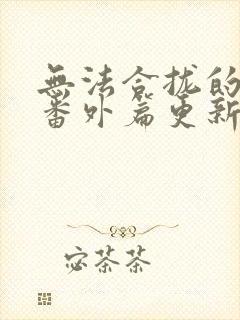 無法合拢的
番外篇更新
宓茶茶